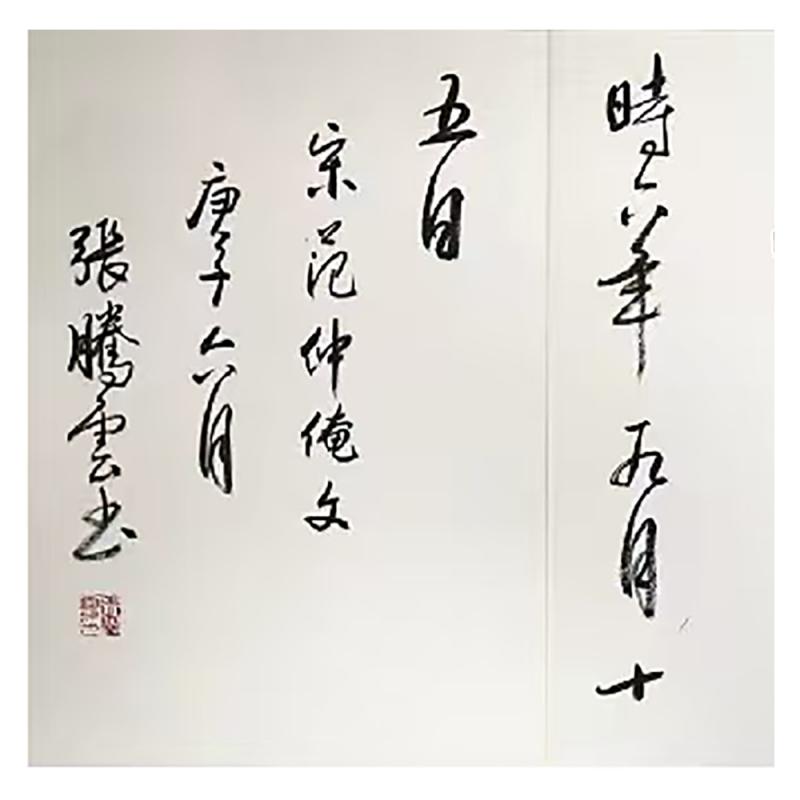 時六年九月十
五日
宋范仲俺文
庚子六月
張騰雲书